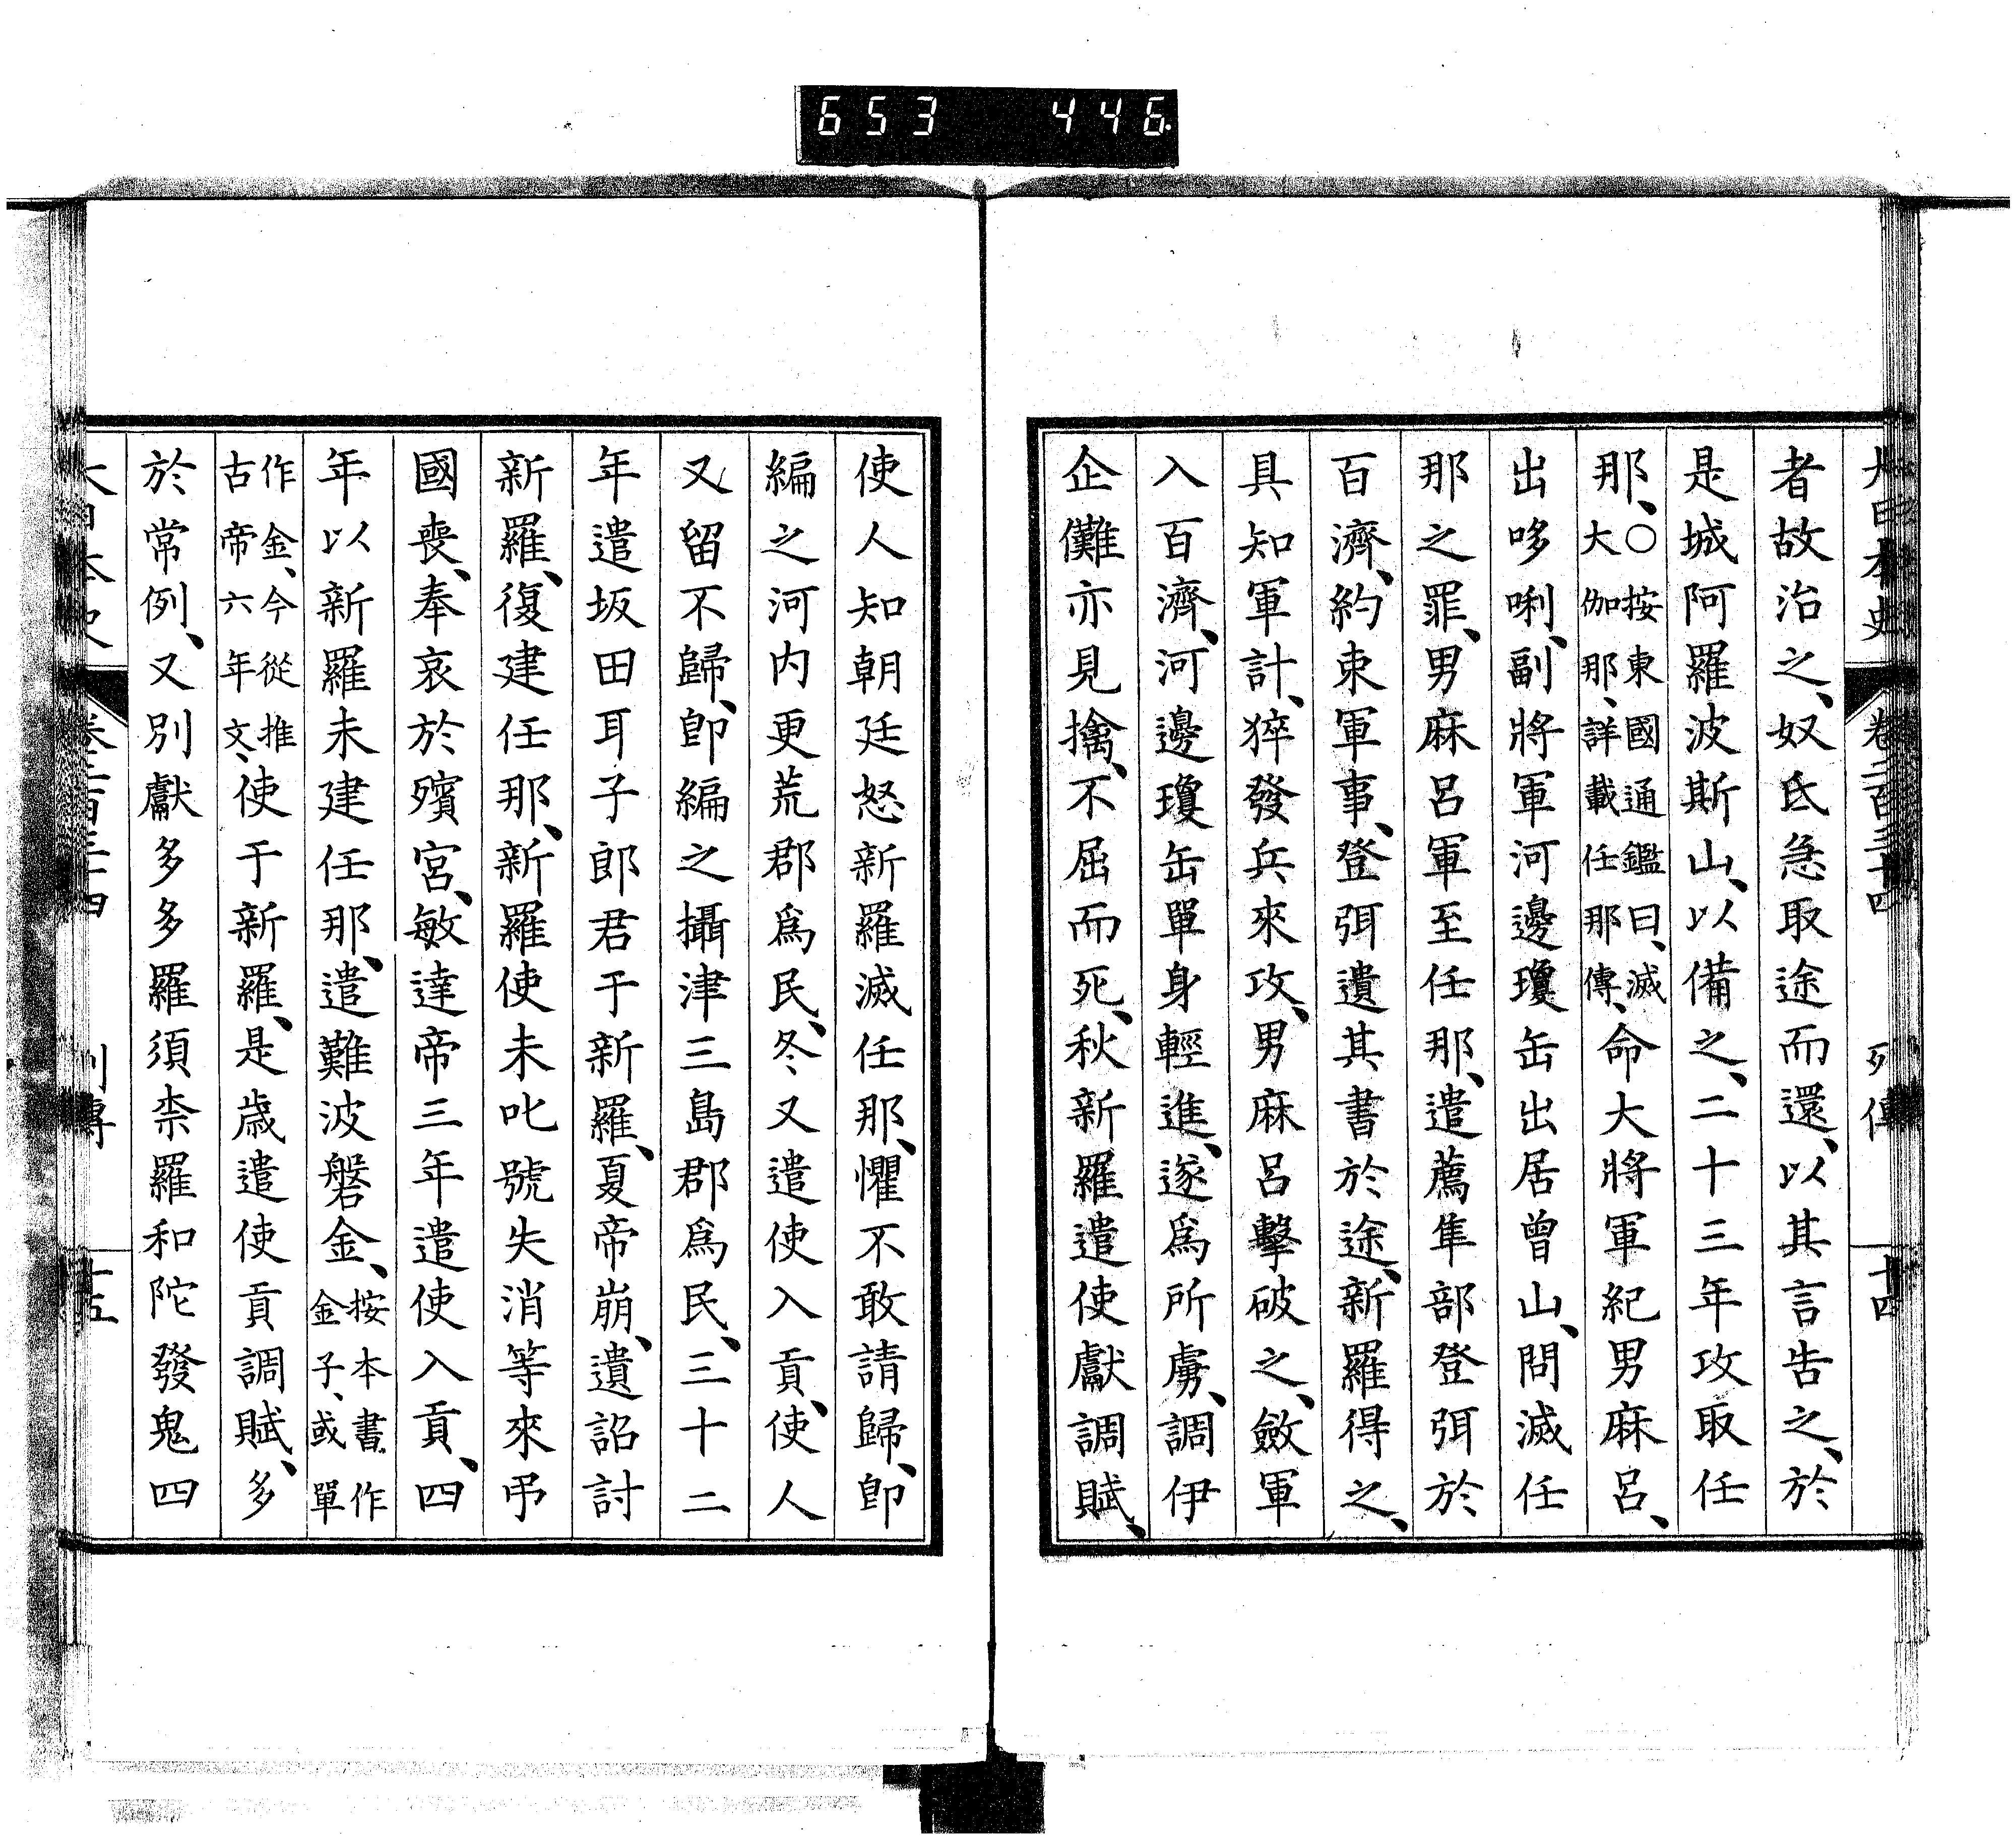 653 446
大日本史 卷二百三十四 列傳 十四
者故治之、奴氐急取途而還、以其言告之、於
是城阿羅波斯山、以備之、二十三年攻取任
那、○按東國通鑑曰、滅大伽那、詳載任那傳、命大將軍紀男麻呂、
出哆唎、副將軍河邊瓊缶出居曾山、問滅任
那之罪、男麻呂軍至任那、遣薦隼部登弭於
百濟、約束軍事、登弭遺其書於途、新羅得之、
具知軍計、猝發兵來攻、男麻呂擊破之、斂軍
入百濟、河邊瓊缶單身輕進、遂爲所虜、調伊
企儺亦見擒、不屈而死、秋新羅遣使獻調賦、
使人知朝廷怒新羅滅任那、懼不敢請歸、卽
編之河內更荒郡爲民、冬又遣使入貢、使人
又留不歸、卽編之攝津三島郡爲民、三十二
年遣坂田耳子郎君于新羅、夏帝崩、遺詔討
新羅、復建任那、新羅使未叱號失消等來弔
國喪、奉哀於殯宮、敏達帝三年遣使入貢、四
年以新羅未建任那、遣難波磐金、按本書作金子、或單
作金、今從推古帝六年文、使于新羅、是歲遣使貢調賦、多
於常例、又別獻多多羅須柰羅和陀發鬼四
大日本史 卷二百三十四 列傳 十五